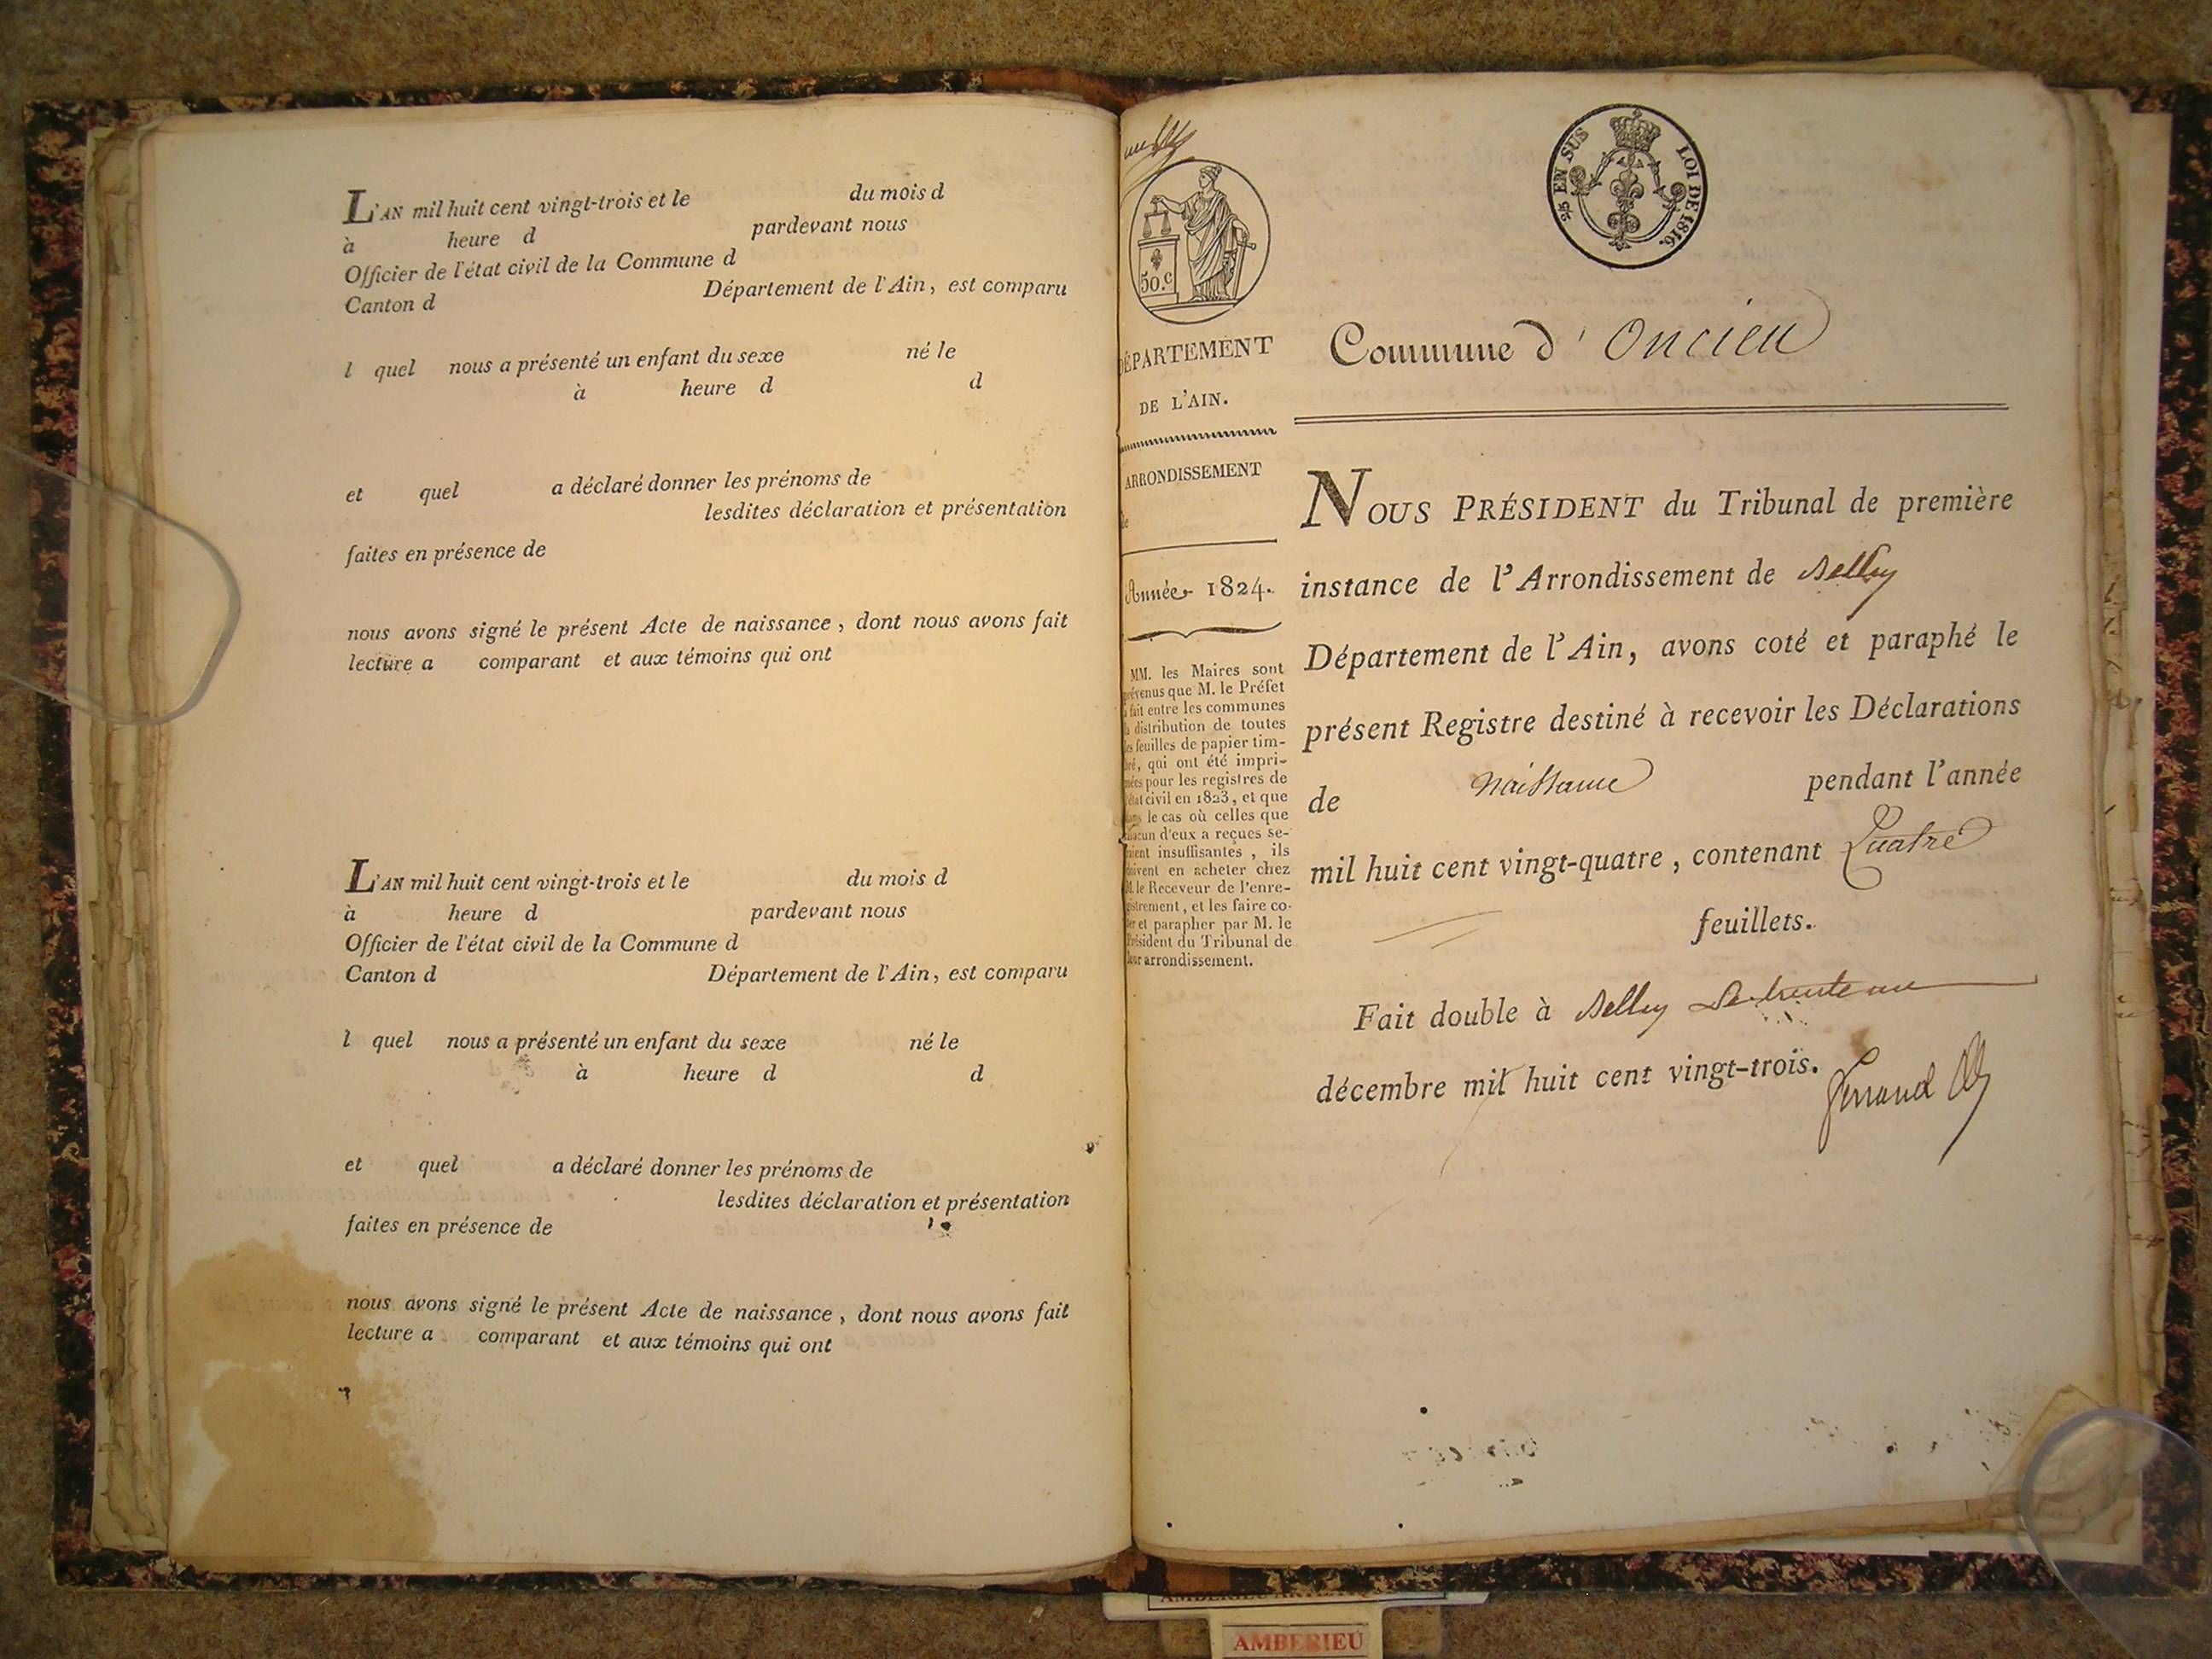 L'AN mil huit cent vingt-trois et le du mois d
à heure d pardevant nous
Officier de l'état civil de la Commune d
Canton d Département de l'Ain, est comparu
l quel nous a présenté un enfant du sexe né le
à heure d d
et quel a déclaré donner les prénoms de
lesdites déclaration et présentation
faites en présence de
nous avons signé le présent Acte de naissance, dont nous avons fait
lecture a comparant et aux témoins qui ont
L'AN mil huit cent vingt-trois et le du mois d
à heure d pardevant nous
Officier de l'état civil de la Commune d
Canton d Département de l'Ain, est comparu
l quel nous a présenté un enfant du sexe né le
à heure d d
et quel a déclaré donner les prénoms de
lesdites déclaration et présentation
faites en présence de
nous avons signé le présent Acte de naissance, dont nous avons fait
lecture a comparant et aux témoins qui ont
50.c
DÉPARTEMENT
DE L'AIN.
ARRONDISSEMENT
de
Année 1824.
MM. les Maires sont
prévenus que M. le Préfet
a fait entre les communes
la distribution de toutes
les feuilles de papier tim-
bré, qui ont été impri-
mées pour les registres de
l'état civil en 1823, et que
dans le cas où celles que
chacun d'eux a reçues se-
raient insuffisantes, ils
doivent en acheter chez
M. le Receveur de l'enre-
gistrement, et les faire co-
ter et parapher par M. le
Président du Tribunal de
leur arrondissement.
25 EN SUS LOI DE 1816.
Commune d'Oncieu
NOUS PRÉSIDENT du Tribunal de première
instance de l'Arrondissement de Belley
Département de l'Ain, avons coté et paraphé le
présent Registre destiné à recevoir les Déclarations
de naissance pendant l'année
mil huit cent vingt-quatre, contenant Quatre
feuillets.
Fait double à Belley Le trente un
décembre mil huit cent vingt-trois.
AMBERIEU